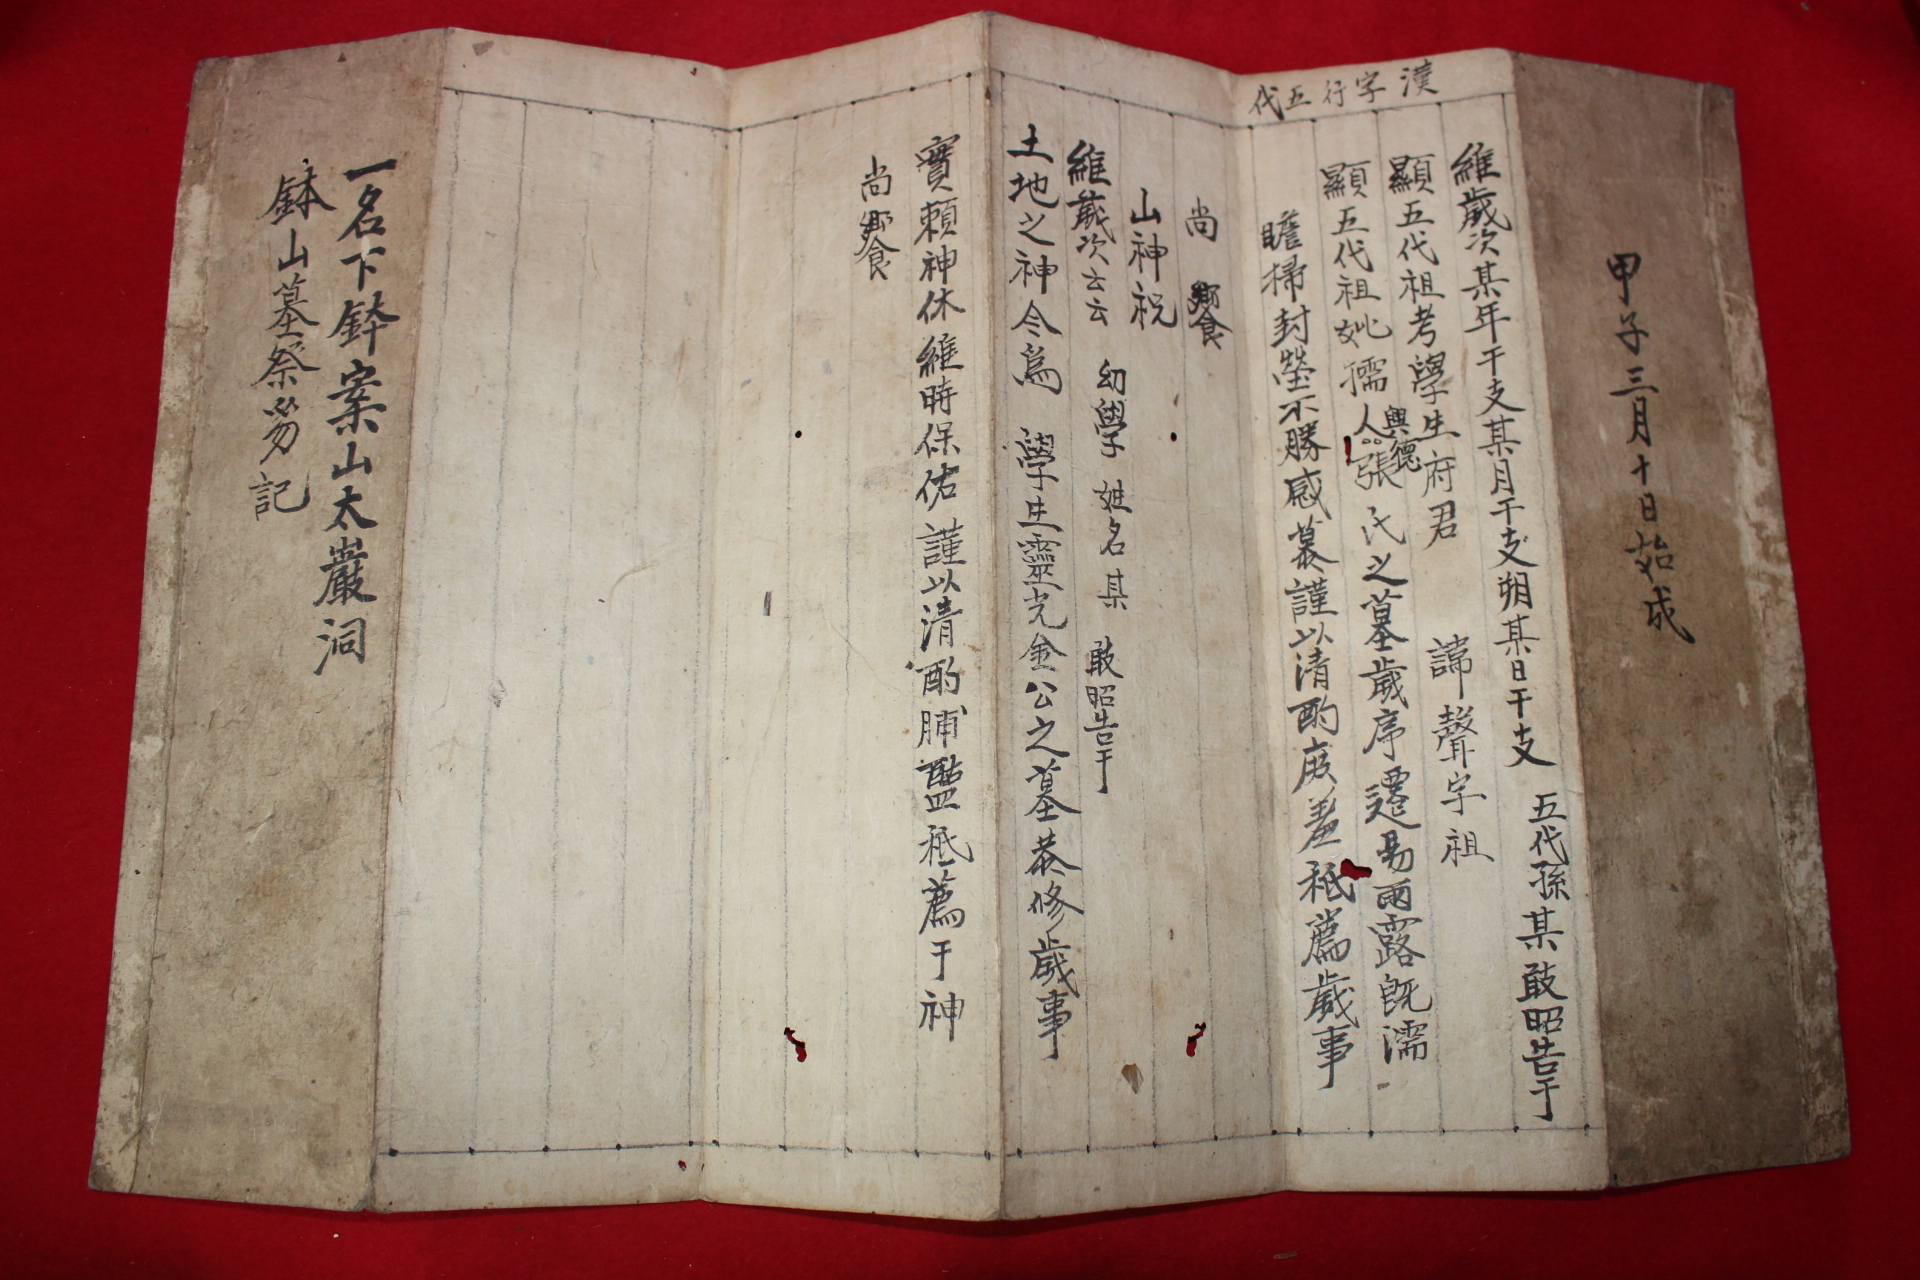 甲子三月十日始成
漢字行五代
維歲次某年干支某月干支朔某日干支 五代孫某敢昭告于
顯五代祖考學生府君 諱聲字祖
顯五代祖妣孺人興德張氏之墓歲序遷易雨露既濡
瞻掃封塋不勝感慕謹以清酌庶羞祗薦歲事
尚 饗
山神祝
維歲次云云 幼學 姓名某 敢昭告于
土地之神今爲 學生靈光金公之墓恭修歲事
實賴神休維時保佑謹以清酌脯醢祗薦于神
尚饗
一名下鉢案山太巖洞
鉢山墓祭笏記